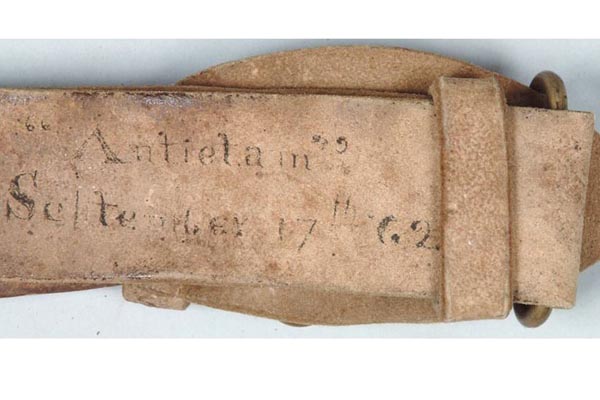 "Antietam"
September 17th 62